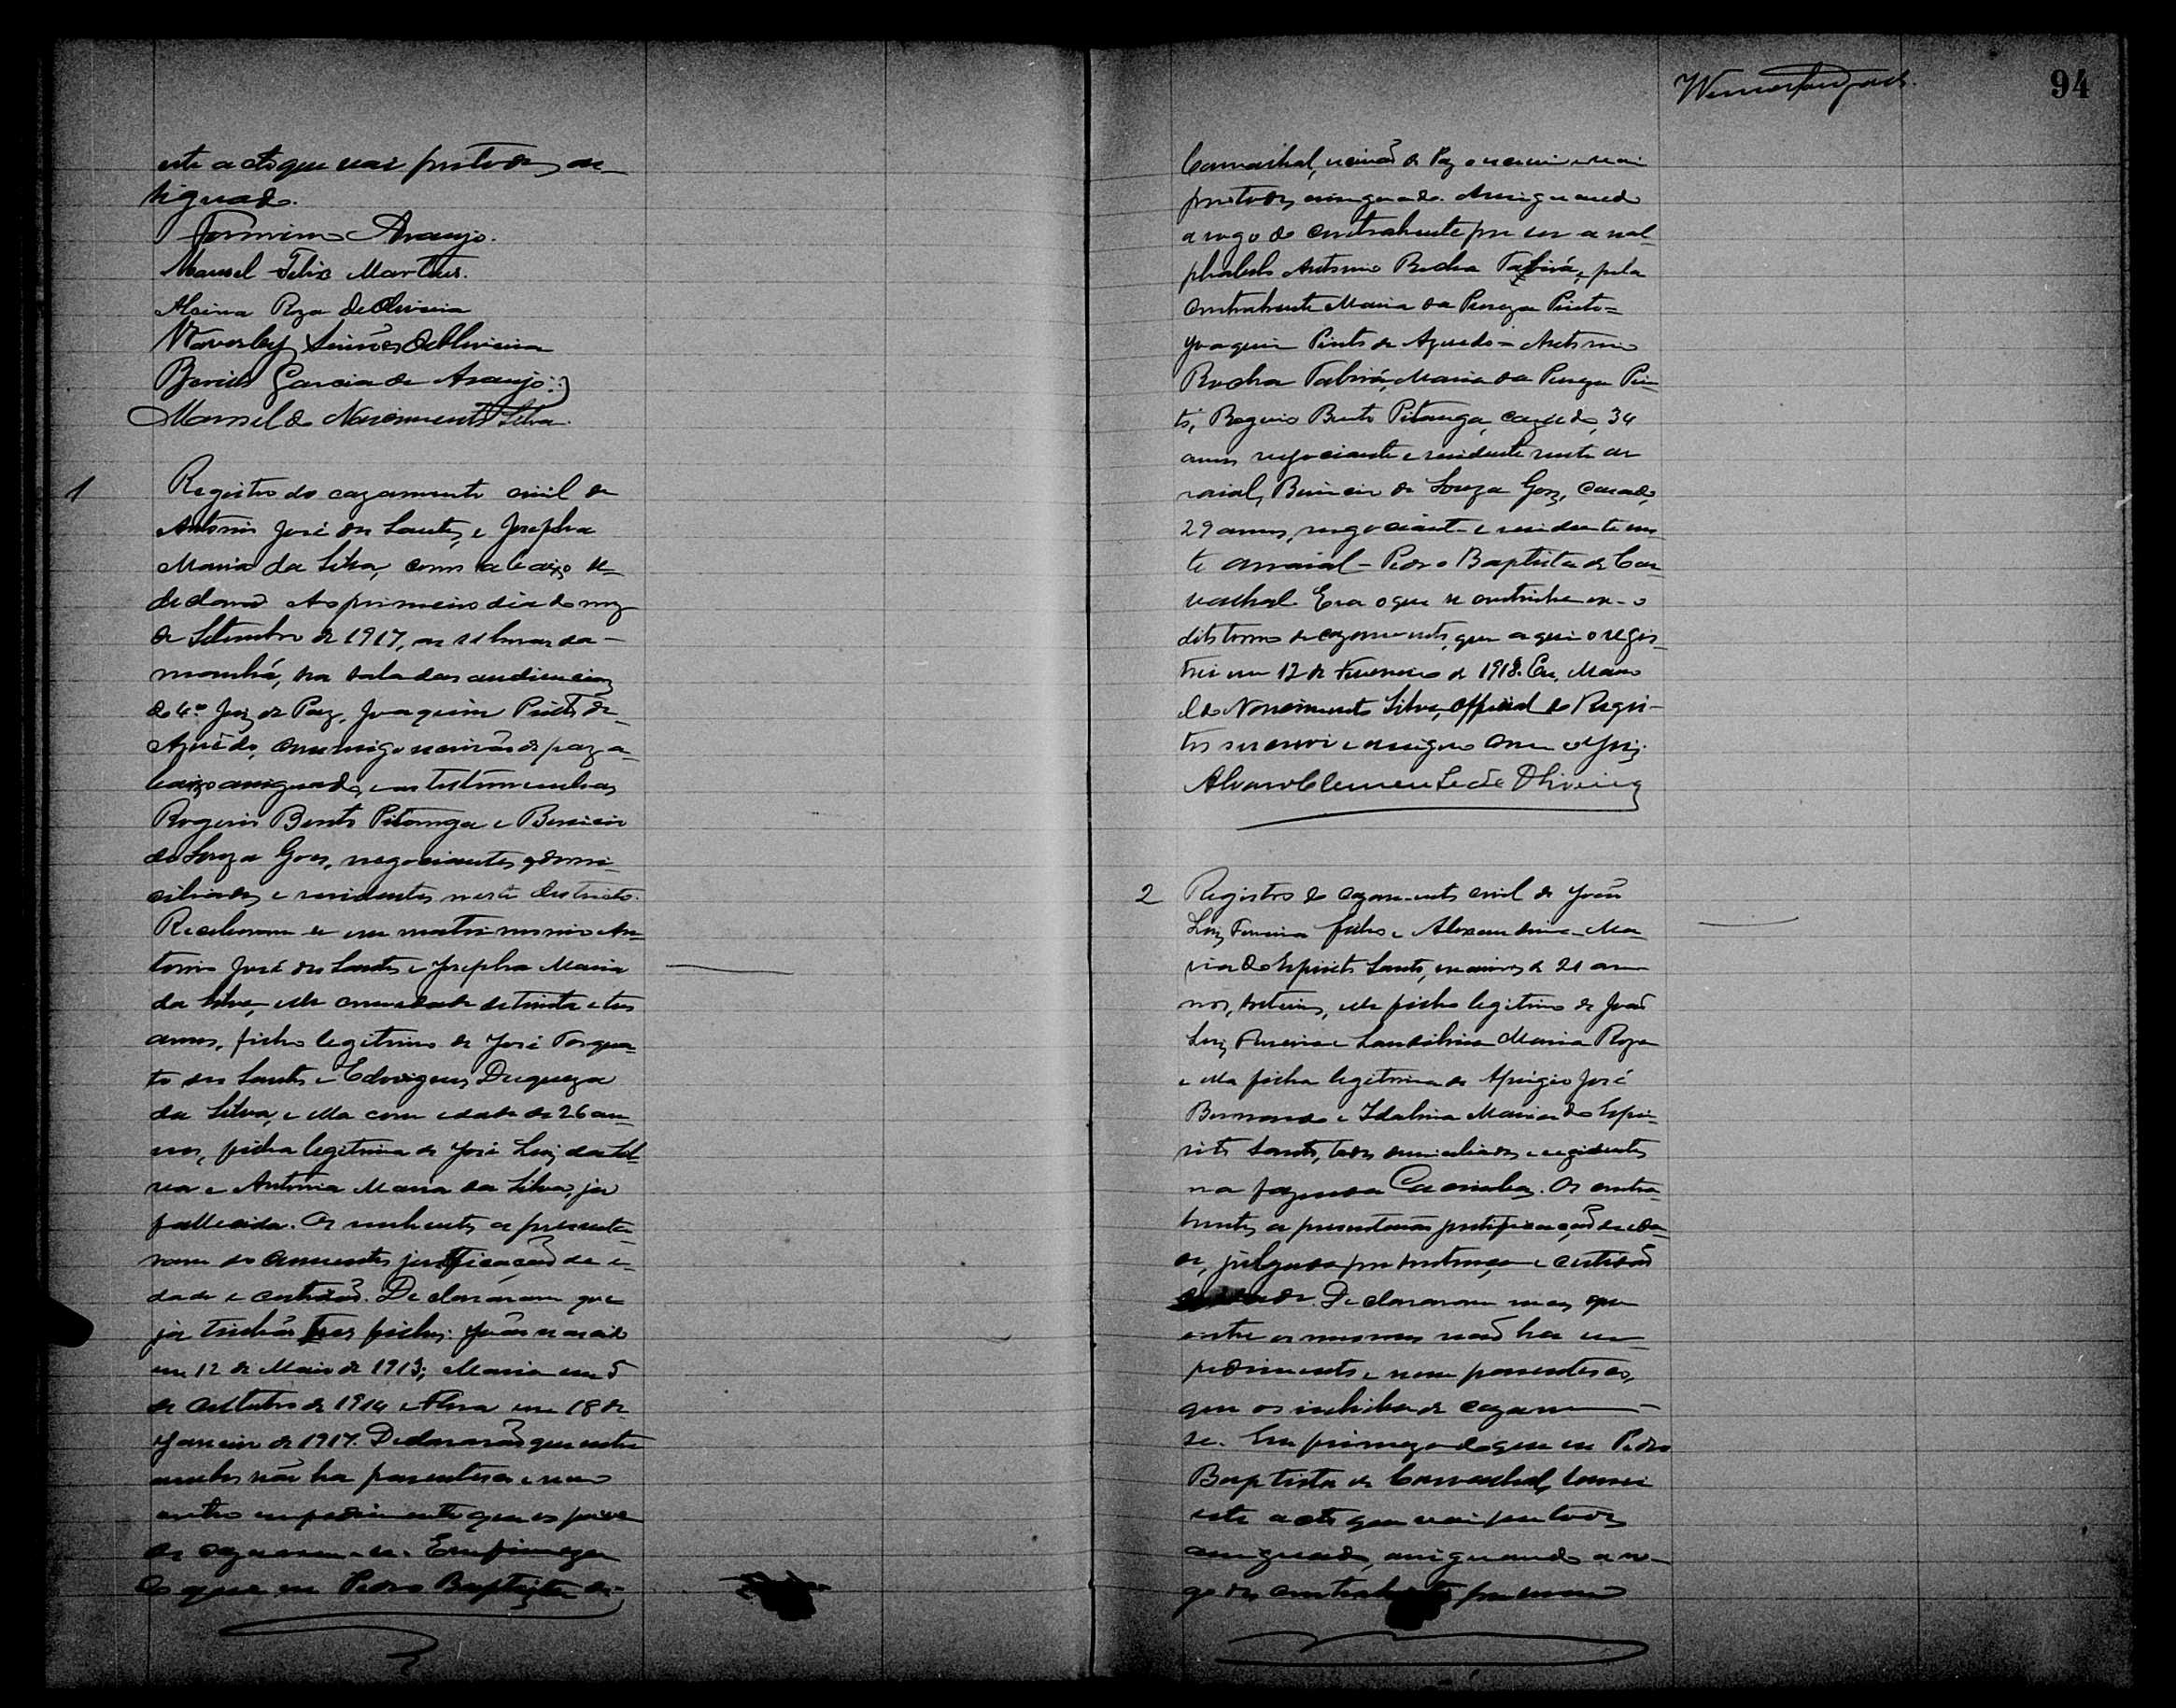 este acto que vai por todos as-
signado.
Firmino Araujo.
Manoel Felix Martins.
Alcina Roza de Oliveira
Waverley Simões de Oliveira
Garcia de Araujo
Manoel do Nascimento Silva.
1
Registro do cazamento civil de
Antonio José dos Santos, e Josepha
Maria da Silva, como abaixo se
declara. Ao primeiro dia do mez
de Setembro de 1917, as horas da
manhã, na sala das audiencias
do 4º Juiz de Paz, Joaquim Pinto de
Azevêdo, commigo escrivão de paz a-
baixo assignado, e as testemunhas
Rogerio Bento Pitanga e Benicio
de Souza Goes, negociantes, domi-
ciliados e residentes neste districto.
Receberam-se em matrimonio An-
tonio José dos Santos e Josepha Maria
da Silva, elle com idade de trinta e tres
annos, filho legitimo de José Torqua-
to dos Santos e Edwiges
da Silva, e ella com idade de 26 an-
nos, filha legitima de José Luiz da Sil-
va e Antonia Maria da Silva, já
fallecida. Os nubentes apresenta-
ram documentos justificação de i-
dade e certidão. Declararam que
já tinhão tres filhos: João nascido
em 12 de Maio de 1913; Maria em 5
de Outubro de 1914 e em 18 de
Janeiro de 1917. Declararão que entre
ambos não ha parentesco e nem
outro impedimento que os prive
de cazarem-se. Em firmeza
do que eu Pedro Baptista de
94
Carvalhal, escrivão de Paz o escrevi e vai
por todos assignado. Assignando
a rogo do contrahente por ser anal-
phabeto Antonio Rocha Tabirá, e pela
contrahente Maria da Pureza Pinto=
Joaquim Pinto de Azevedo - Antonio
Rocha Tabirá, Maria da Pureza Pin-
to, Rogerio Bento Pitanga, cazado, 34
annos negociante e residente neste ar-
raial, Benicio de Souza Goes, casado,
29 annos, negociante e residente nes-
te arraial - Pedro Baptista de Car-
valhal. Era o que se continha em o
dito termo de cazamento, que aqui o regis-
trei em 12 de Fevereiro de 1918. Eu, Mano-
el do Nascimento Silva, Official do Regis-
tro escrevi e assigno com o Juiz.
Alvaro Clemente de Oliveira
2
Registro do cazamento civil de João
Luiz Ferreira filho e Alexandrina Ma-
ria do Espirito Santo, maiores de 21 an-
nos, solteiros, elle filho legitimo de João
Luiz Ferreira e Laudelina Maria Roza
e ella filha legitima de Aprigio José
Bernardo e Idalina Maria do Espi-
rito Santo, todos domiciliados e rezidentes
na fazenda Cacimbas. Os contra-
hentes apresentarão justificação de ida-
de, julgada por sentença e certidão
Declararam mais que
entre os mesmos não ha im-
pedimento e nem parentesco,
que os inhiba de cazarem-
se. Em firmeza do que eu Pedro
Baptista de Carvalhal, lavrei
este acto que vai por todos
assignado, assignando a ro-
go dos contrahentes por serem